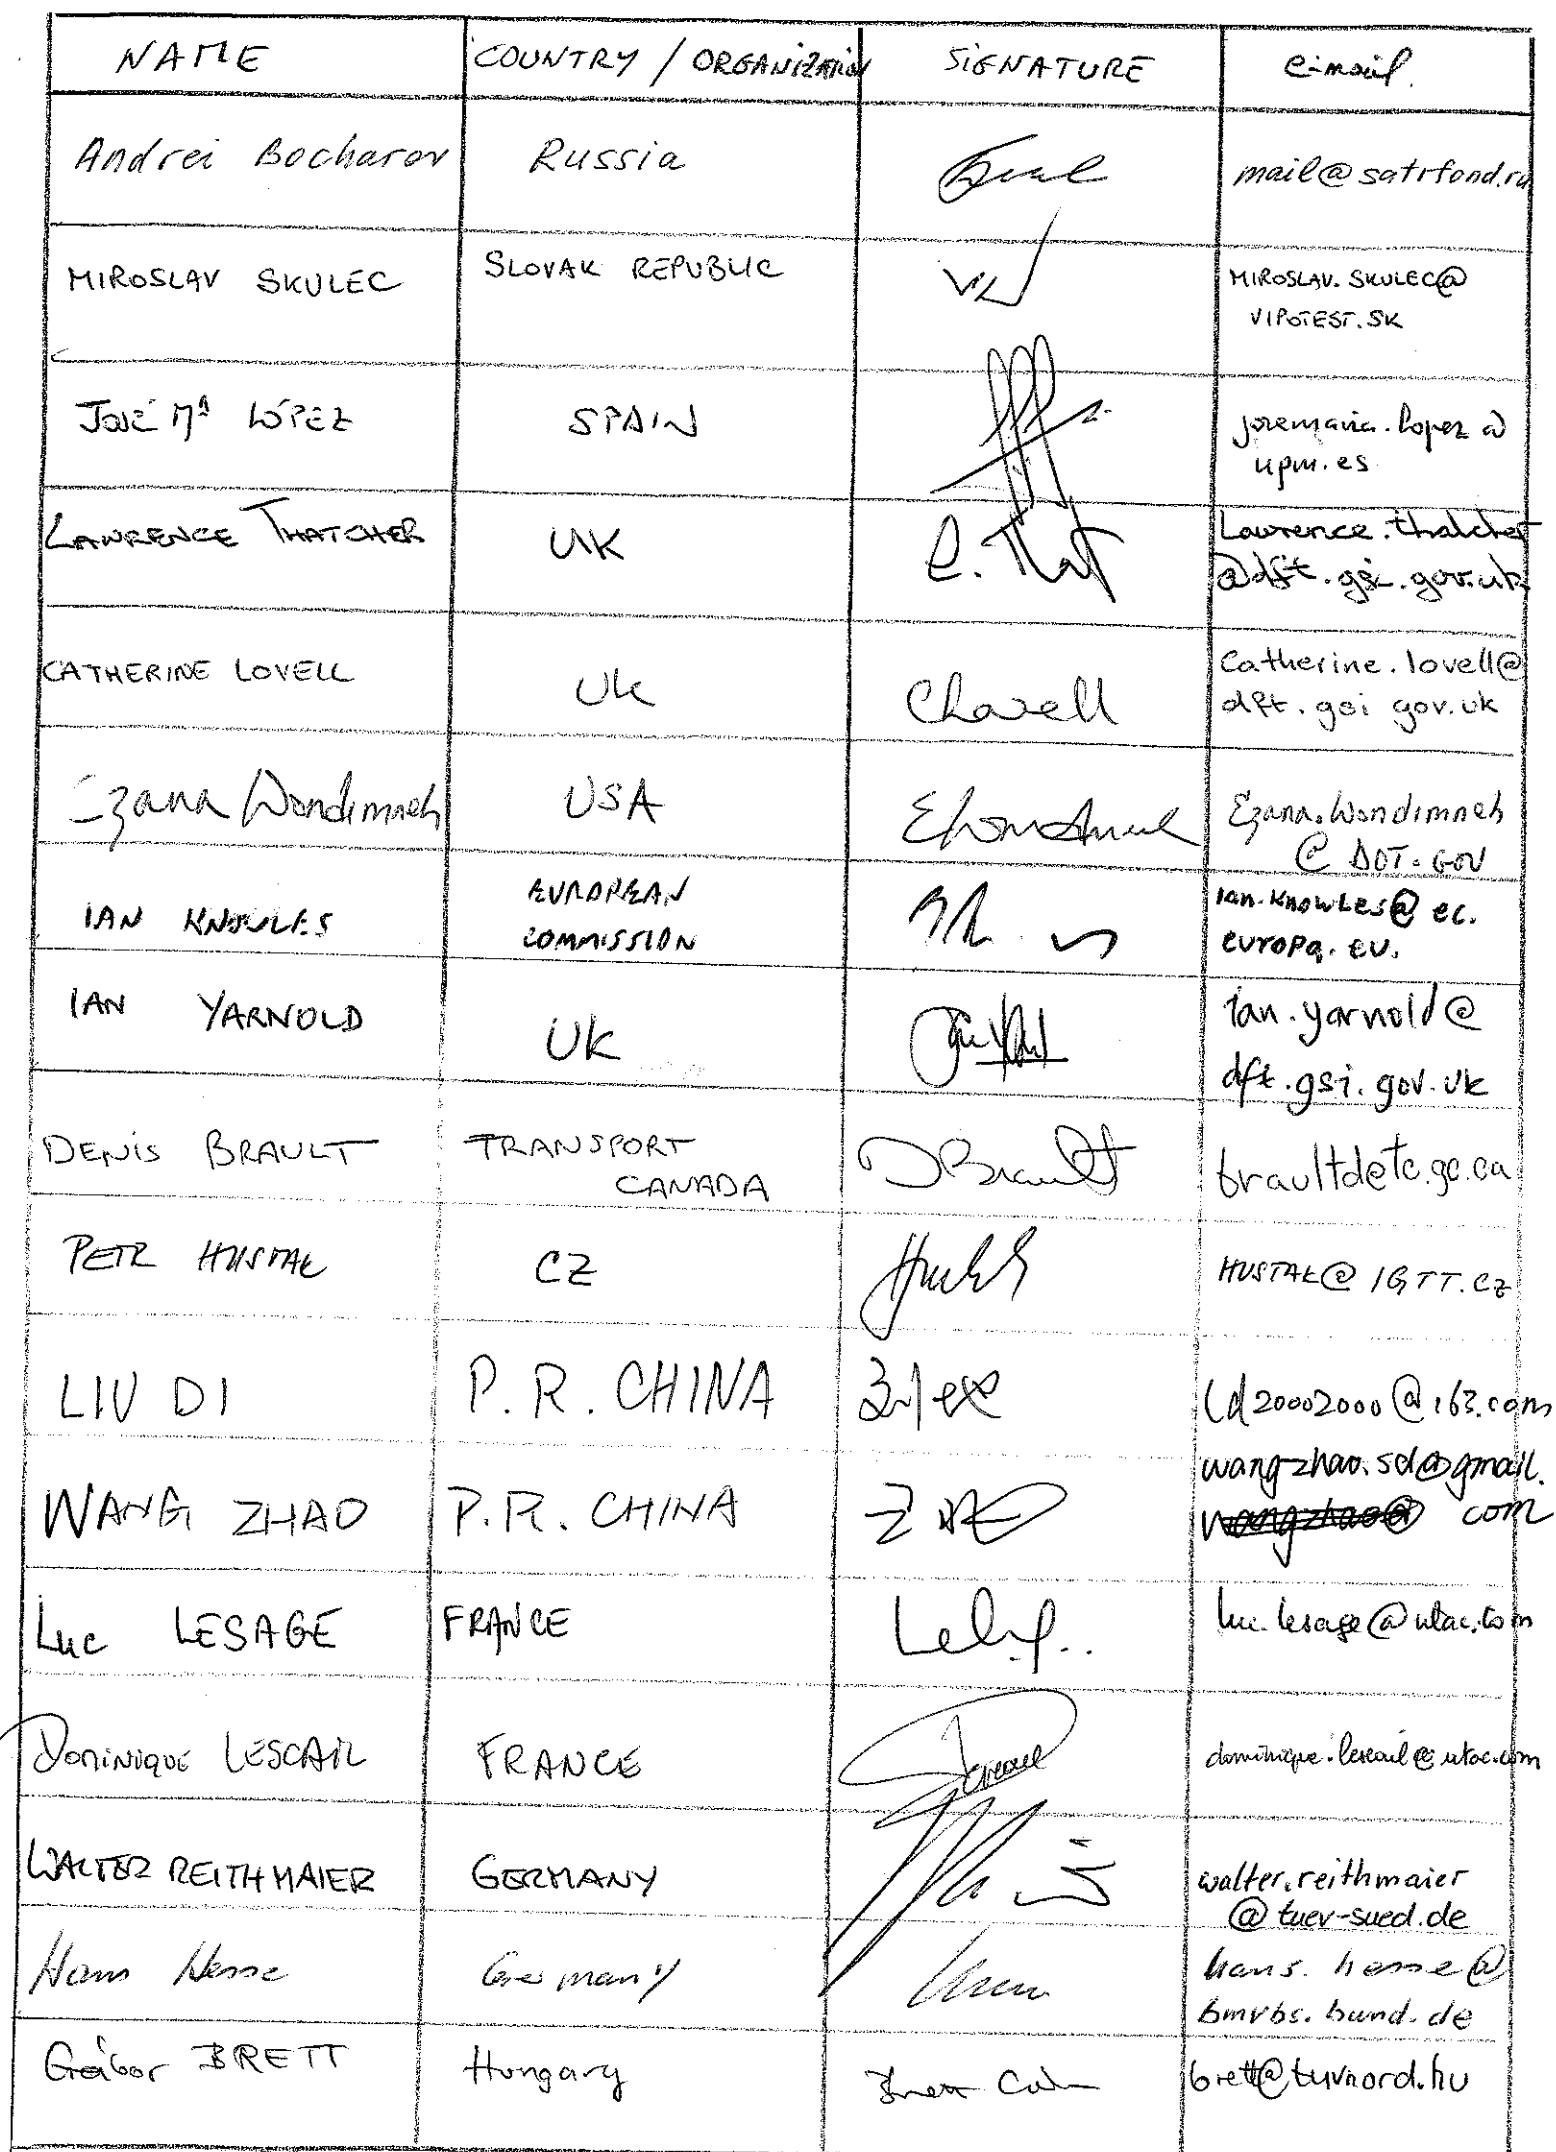 NAME COUNTRY / ORGANIZATION SIGNATURE e-mail.
Andrei Bocharov Russia mail@satrfond.ru
MIROSLAV SKULEC SLOVAK REPUBLIC MIROSLAV.SKULEC@
VIPOTEST.SK
JOSÉ Mª LÓPEZ SPAIN josemaria.lopez@
upm.es
LAWRENCE THATCHER UK Lawrence.thatcher
L. That @dft.gsi.gov.uk
CATHERINE LOVELL UK CLovell Catherine.lovell@
dft.gsi gov.uk
Ezana Wondimneh USA Ezana.Wondimneh
@ DOT.GOV
IAN KNOWLES EUROPEAN Ian.Knowles@ ec.
COMMISSION europa.eu.
IAN YARNOLD UK ian.yarnold@
dft.gsi.gov.uk
DENIS BRAULT TRANSPORT DBrault braultd@tc.gc.ca
CANADA
PETR HUSTAK CZ HUSTAK@ IGTT.CZ
LIU DI P.R. CHINA ld20002000@163.com
wangzhao.sd@gmail.
WANG ZHAO P.R. CHINA wangzhao@ com
Luc LESAGE FRANCE luc.lesage@utac.com
DOMINIQUE LESCAIL FRANCE dominique.lescail@utac.com
WALTER REITHMAIER GERMANY walter.reithmaier
@ tuev-sued.de
Hans Hesse Germany hans.hesse@
bmvbs.bund.de
Gábor BRETT Hungary brett@tuvnord.hu